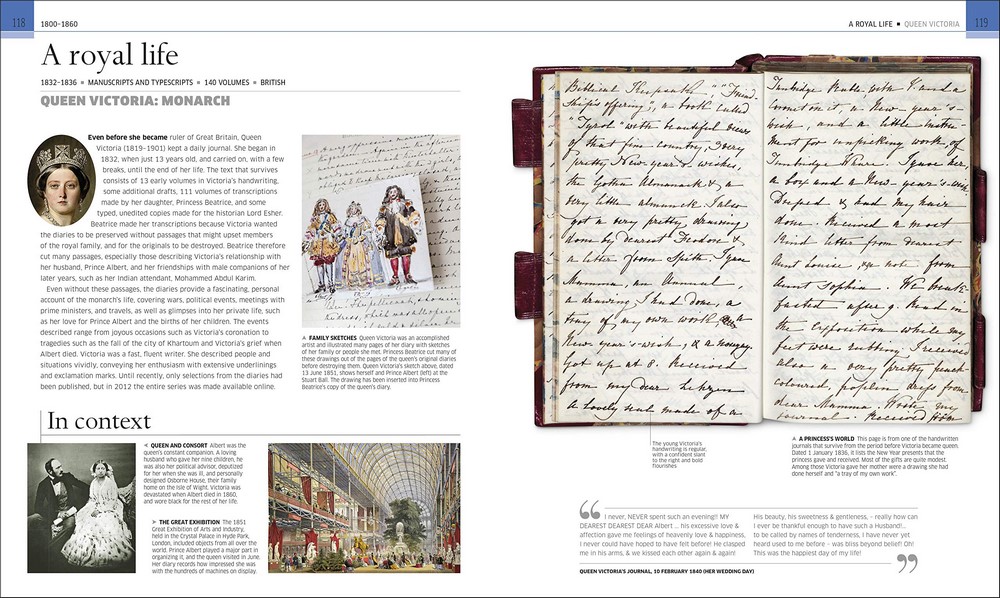 118
1800–1860
A royal life
1832–1836 ■ MANUSCRIPTS AND TYPESCRIPTS ■ 140 VOLUMES ■ BRITISH
QUEEN VICTORIA: MONARCH
Even before she became ruler of Great Britain, Queen
Victoria (1819–1901) kept a daily journal. She began in
1832, when just 13 years old, and carried on, with a few
breaks, until the end of her life. The text that survives
consists of 13 early volumes in Victoria's handwriting,
some additional drafts, 111 volumes of transcriptions
made by her daughter, Princess Beatrice, and some
typed, unedited copies made for the historian Lord Esher.
Beatrice made her transcriptions because Victoria wanted
the diaries to be preserved without passages that might upset members
of the royal family, and for the originals to be destroyed. Beatrice therefore
cut many passages, especially those describing Victoria's relationship with
her husband, Prince Albert, and her friendships with male companions of her
later years, such as her Indian attendant, Mohammed Abdul Karim.
Even without these passages, the diaries provide a fascinating, personal
account of the monarch's life, covering wars, political events, meetings with
prime ministers, and travels, as well as glimpses into her private life, such
as her love for Prince Albert and the births of her children. The events
described range from joyous occasions such as Victoria's coronation to
tragedies such as the fall of the city of Khartoum and Victoria's grief when
Albert died. Victoria was a fast, fluent writer. She described people and
situations vividly, conveying her enthusiasm with extensive underlinings
and exclamation marks. Until recently, only selections from the diaries had
been published, but in 2012 the entire series was made available online.
▲ FAMILY SKETCHES Queen Victoria was an accomplished
artist and illustrated many pages of her diary with sketches
of her family or people she met. Princess Beatrice cut many of
these drawings out of the pages of the queen's original diaries
before destroying them. Queen Victoria's sketch above, dated
13 June 1851, shows herself and Prince Albert (left) at the
Stuart Ball. The drawing has been inserted into Princess
Beatrice's copy of the queen's diary.
In context
◄ QUEEN AND CONSORT Albert was the
queen's constant companion. A loving
husband who gave her nine children, he
was also her political advisor, deputized
for her when she was ill, and personally
designed Osborne House, their family
home on the Isle of Wight. Victoria was
devastated when Albert died in 1860,
and wore black for the rest of her life.
► THE GREAT EXHIBITION The 1851
Great Exhibition of Arts and Industry,
held in the Crystal Palace in Hyde Park,
London, included objects from all over the
world. Prince Albert played a major part in
organizing it, and the queen visited in June.
Her diary records how impressed she was
with the hundreds of machines on display.
A ROYAL LIFE ■ QUEEN VICTORIA
119
"Friend-
ship's offering", a book called
"Tyrol" with beautiful views
of that fine country, 3 very
pretty New-year's wishes,
the Gotha Almanack & a
very little almanack. I also
got a very pretty drawing
done by dearest Feodore &
a letter from Spith. I gave
Mamma, an Annual,
a drawing I had done, a
tray of my own work
New-year's-wish, & a nosegay.
Got up at 8. Received
from my dear Lehzen
a lovely seal made of a
Tunbridge
on it, a New-year's-
wish, and a little instru-
ment for unpicking work, of
Tunbridge Ware. I gave her
a box and a New-year's-wish.
Dressed & had my hair
done. Received a most
kind letter from dearest
Aunt Louise, & a note from
Aunt Sophia. We break-
fasted after 9. Read in
the Exposition while my
feet were rubbing. I received
also a very pretty peach
coloured poplin dress from
dear Mamma. Wrote my
journal. Received from
The young Victoria's
handwriting is regular,
with a confident slant
to the right and bold
flourishes
▲ A PRINCESS'S WORLD This page is from one of the handwritten
journals that survive from the period before Victoria became queen.
Dated 1 January 1836, it lists the New Year presents that the
princess gave and received. Most of the gifts are quite modest.
Among those Victoria gave her mother were a drawing she had
done herself and "a tray of my own work".
“ I never, NEVER spent such an evening!! MY
DEAREST DEAREST DEAR Albert ... his excessive love &
affection gave me feelings of heavenly love & happiness,
I never could have hoped to have felt before! He clasped
me in his arms, & we kissed each other again & again!
His beauty, his sweetness & gentleness, - really how can
I ever be thankful enough to have such a Husband!...
to be called by names of tenderness, I have never yet
heard used to me before - was bliss beyond belief! Oh!
This was the happiest day of my life! ”
QUEEN VICTORIA'S JOURNAL, 10 FEBRUARY 1840 (HER WEDDING DAY)